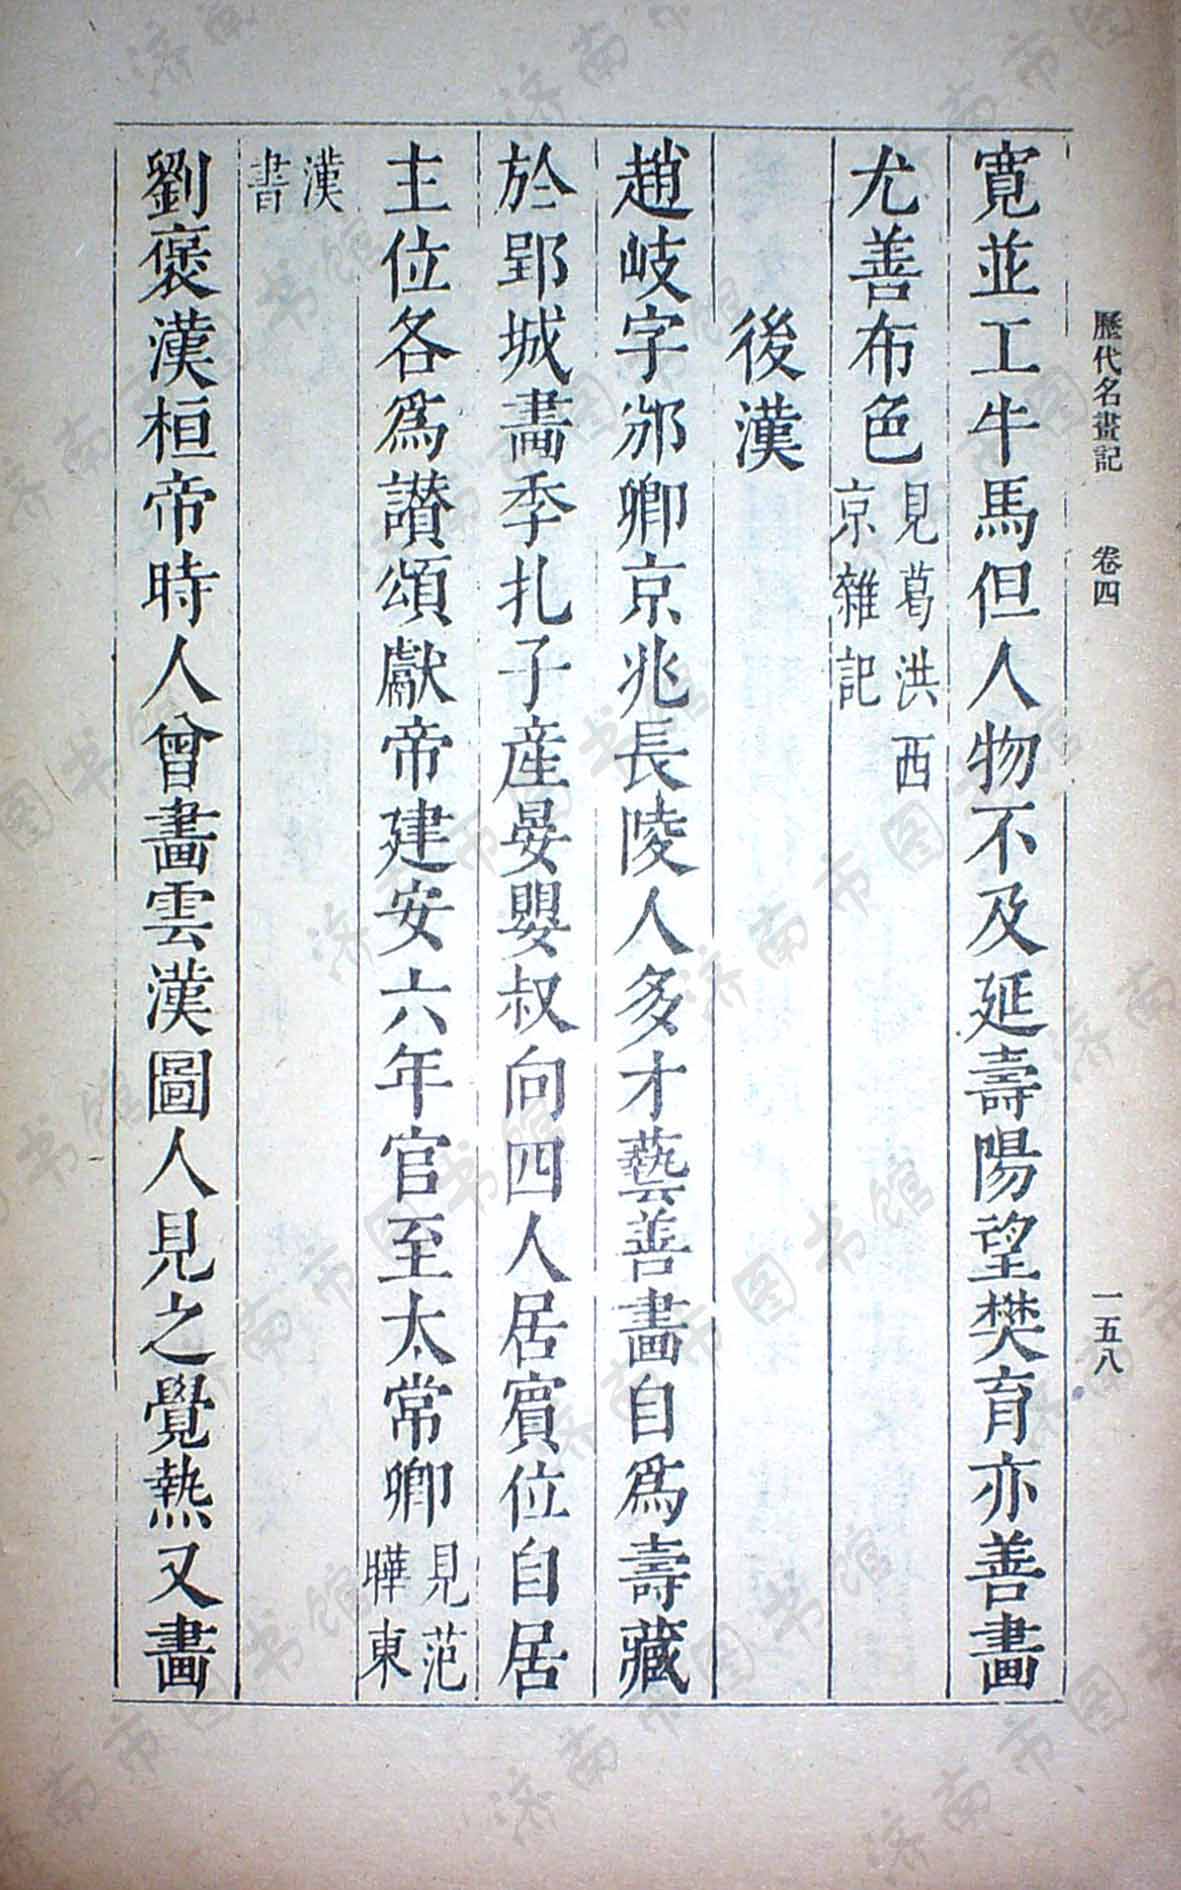 歷代名畫記　卷四　一五八
寛並工牛馬但人物不及延壽陽望樊育亦善畫
尤善布色見葛洪西京雜記
後漢
趙岐字邠卿京兆長陵人多才藝善畫自爲壽藏
於郢城畫季札子產晏嬰叔向四人居賓位自居
主位各爲讃頌獻帝建安六年官至太常卿見范曄東
漢書
劉褒漢桓帝時人曾畫雲漢圖人見之覺熱又畫
济南市图书馆